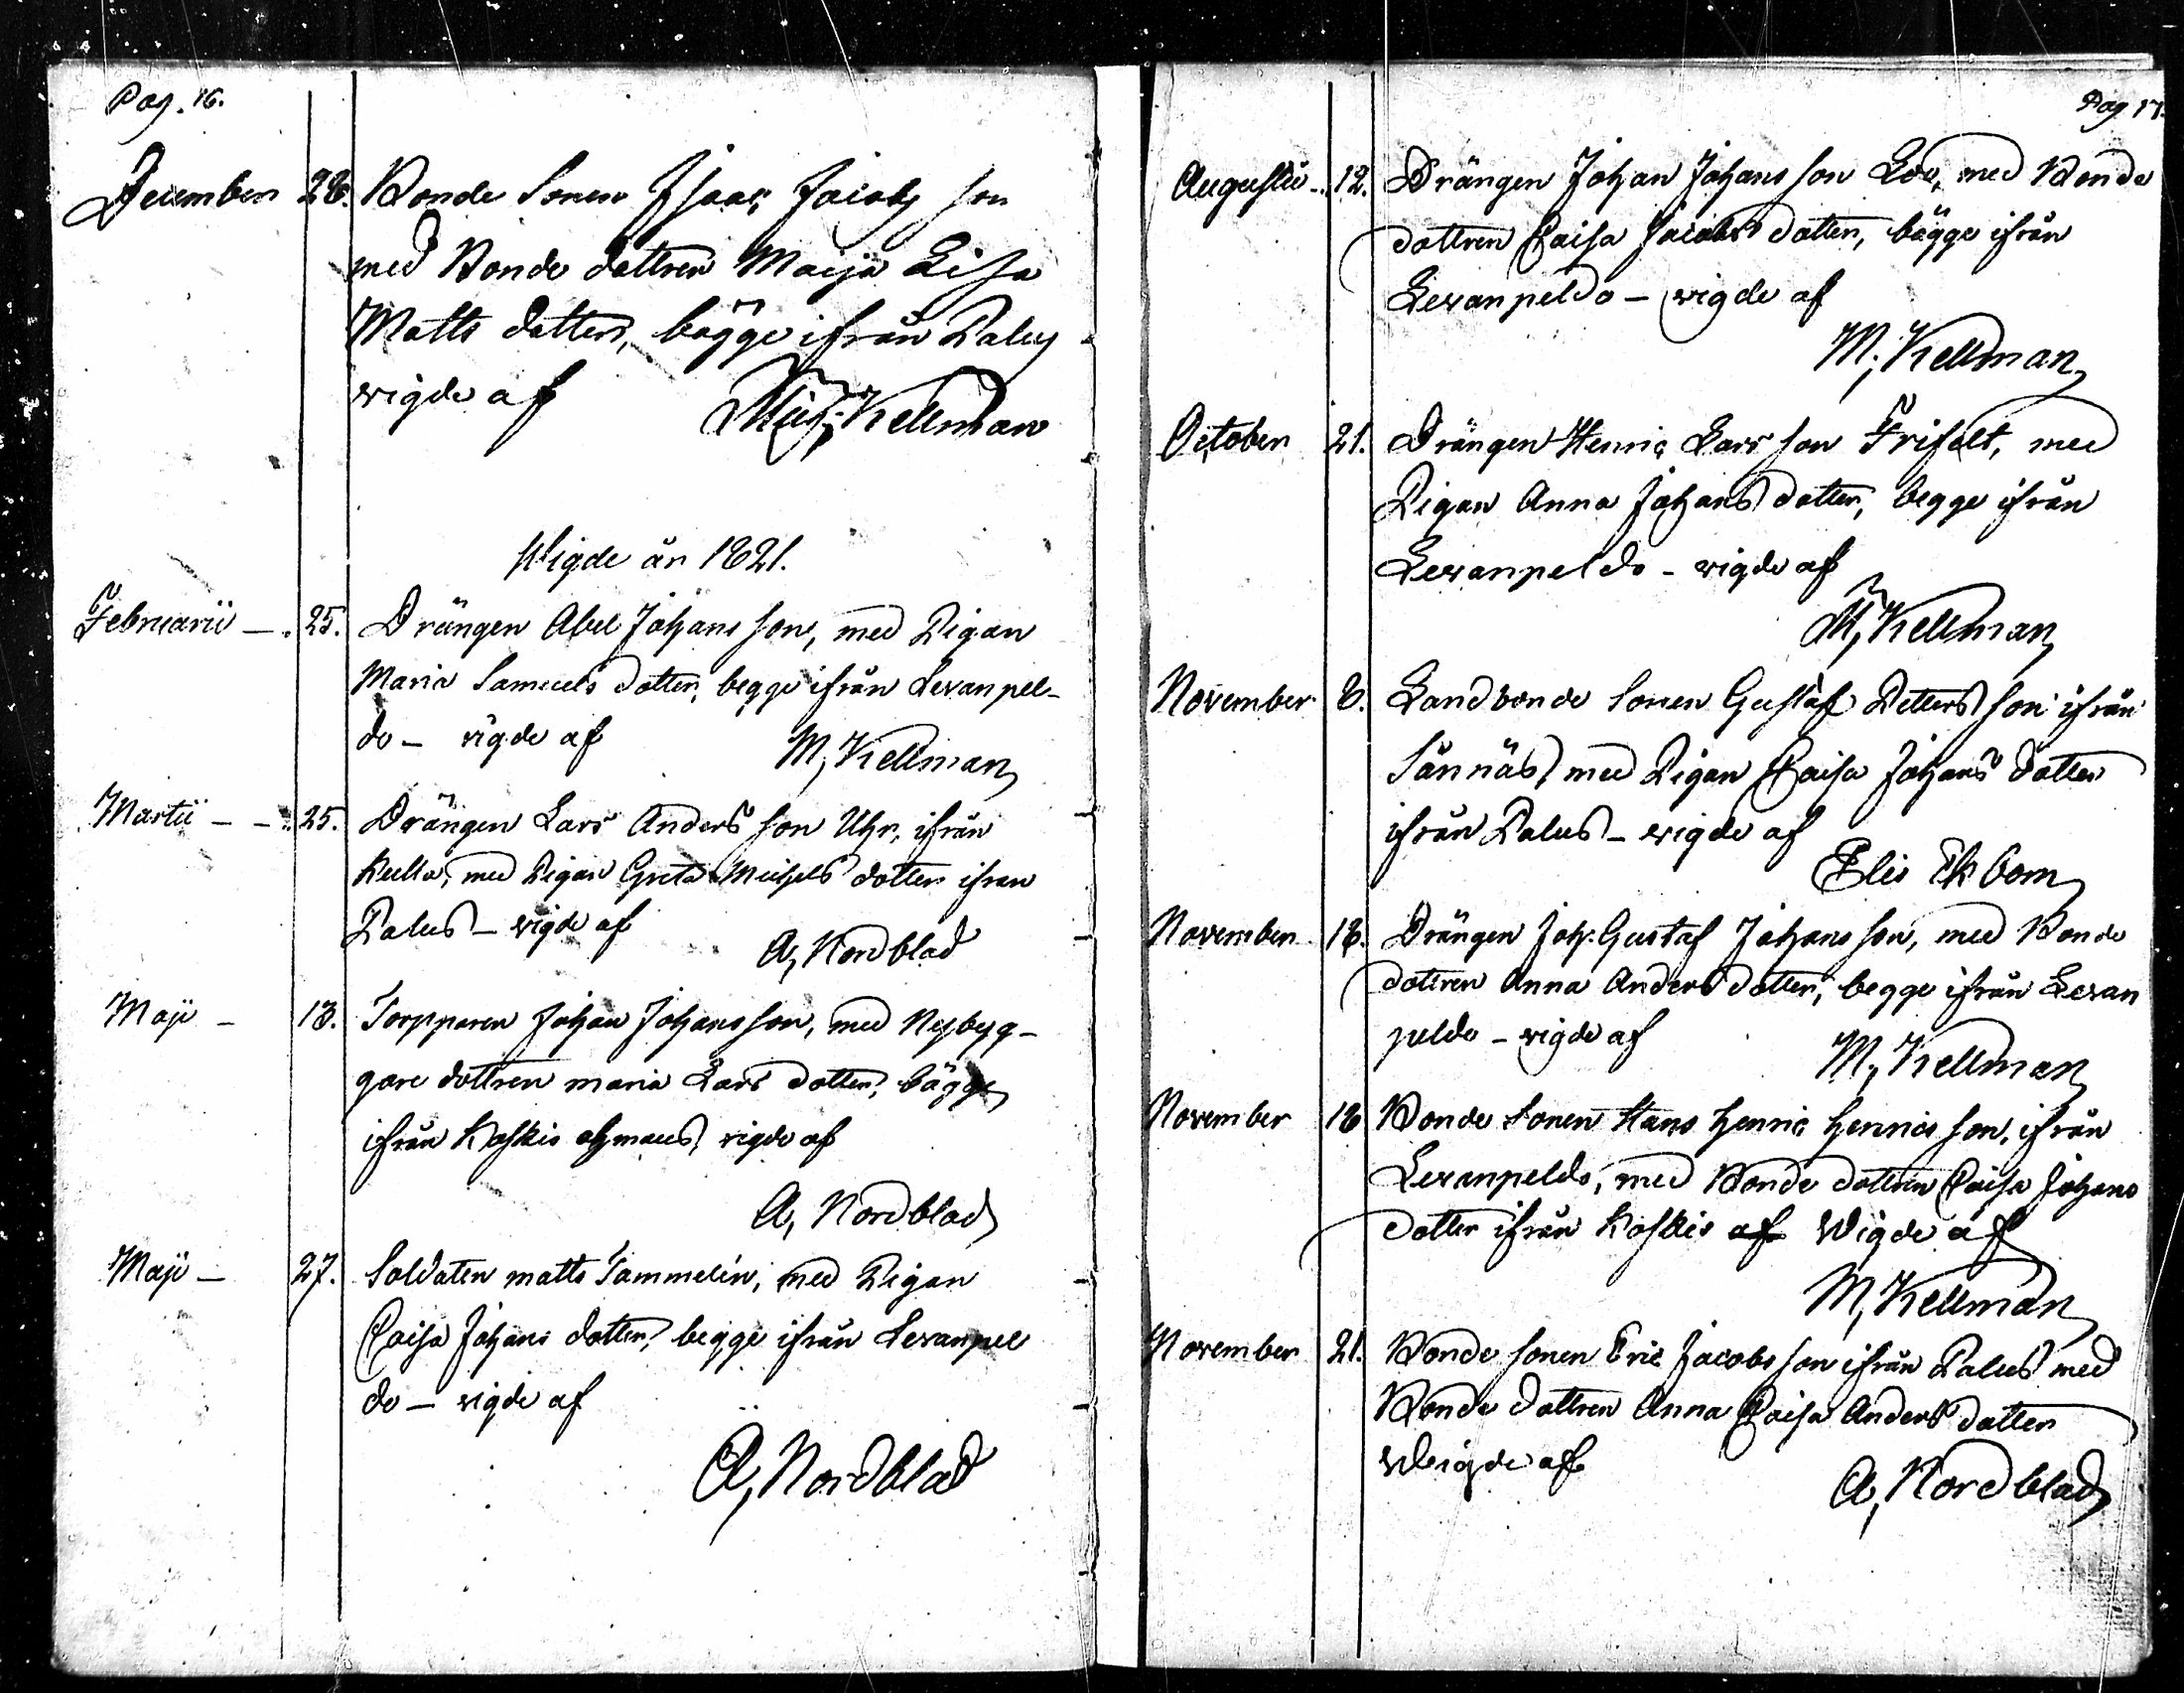 Pag. 16.
December 28. Bonde Sonen Isaac Jacobs son
med Bonde dottren Maija Lisa
Matts dotter, bägge ifrån Palus
vigde af Mich: Kellman
Wigde år 1821.
Februarii — 25. Drängen Abel Johans son, med Pigan
Maria Samuels dotter, begge ifrån Levanpel-
do — vigde af M; Kellman
Martii — 25. Drängen Lars Anders son Uhr, ifrån
Kulla, med Pigan Greta Michels dotter ifrån
Palus — vigde af A, Nordblad
Maji — 13. Torpparen Johan Johans son, med Nybyg-
gare dottren maria Lars dotter, bägge
ifrån Koskis vigde af
A, Nordblad
Maji — 27. Soldaten matts Tammelin, med Pigan
Caisa Johans dotter, begge ifrån Levanpel
do — vigde af
A, Nordblad
Pag. 17.
Augustii 12. Drängen Johan Johans son med Bonde
dottren Caisa Jacobs dotter, bägge ifrån
Levanpeldo — vigde af
M; Kellman
October 21. Drängen Henric Lars son Frifelt, med
Pigan Anna Johans dotter, begge ifrån
Levanpeldo — vigde af
M; Kellman
November 8. Landbonde Sonen Gustaf Petters son ifrån
Sännäs, med Pigan Caisa Johans dotter
ifrån Palus — vigde af
Elis Ekbom
November 18. Drängen Joh. Gustaf Johans son, med Bonde
dottren Anna Anders dotter, begge ifrån Levan
peldo — vigde af
M; Kellman
November 18 Bonde Sonen Hans Henric Henrics son, ifrån
Levanpeldo, med Bonde dottren Caisa Johans
dotter ifrån Koskis af Wigde af
M; Kellman
November 21. Bonde sonen Eric Jacobs son ifrån Palus med
Bonde dottren Anna Caisa Anders dotter
Wigde af
A, Nordblad